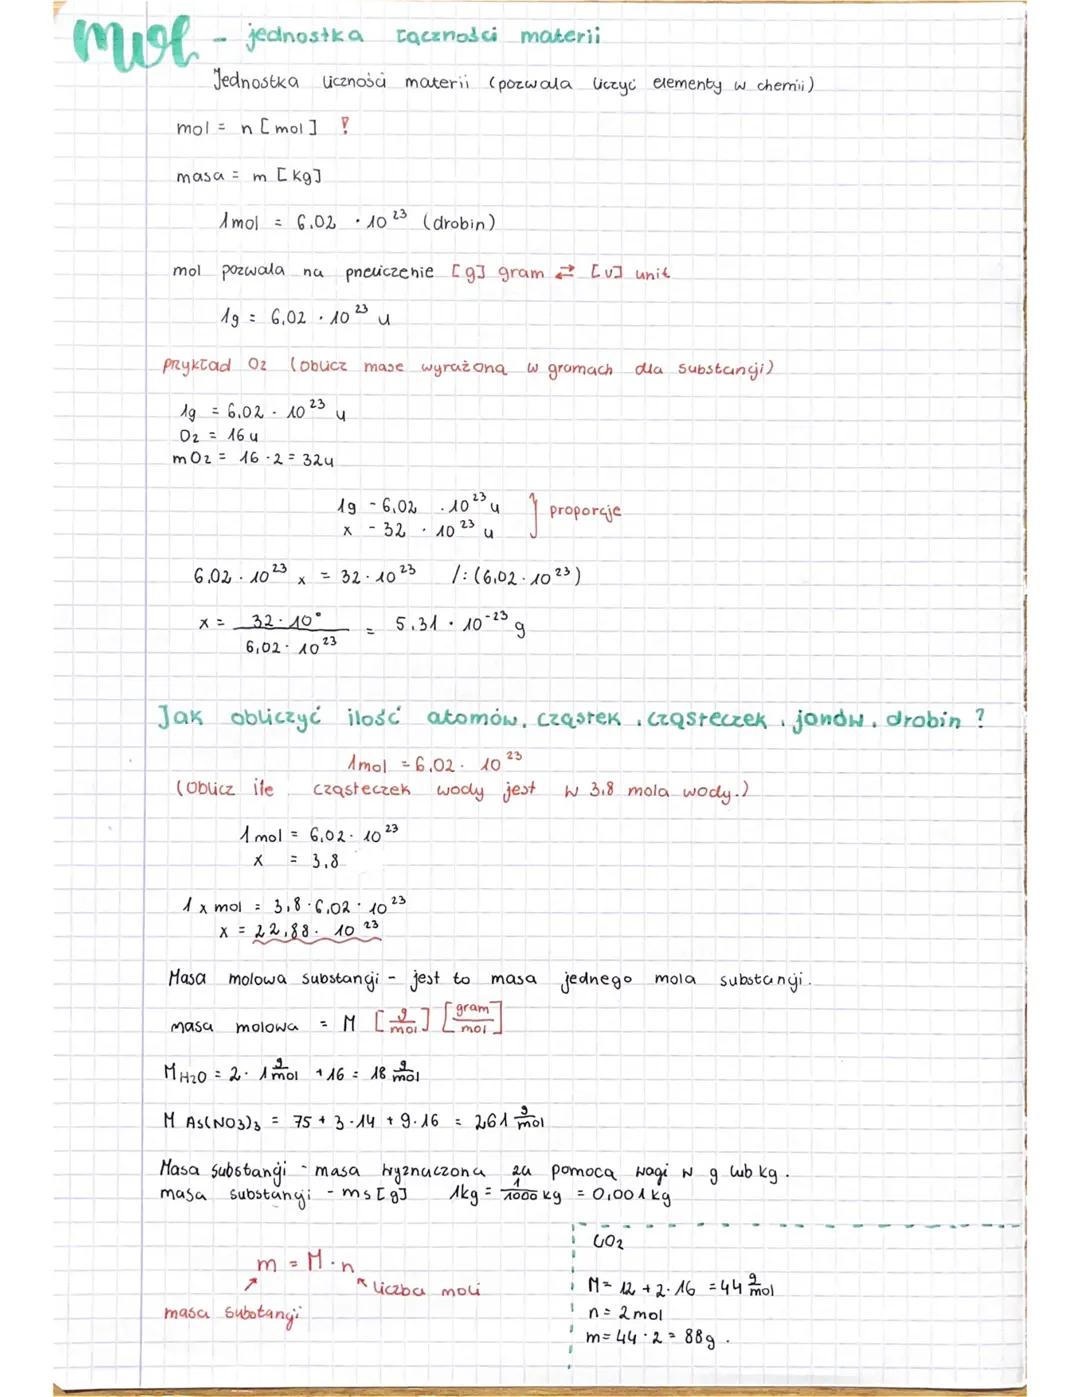 mol - jednostka łączności materii
Jednostka liczności materii (pozwala liczyć elementy w chemii)
mol = n [mol] !
masa = m [kg]
1mol = 6.02 · 10²³ (drobin)
mol pozwala na przeliczenie [g] gram ⇄ [u] unit
1g = 6,02 · 10²³ u
przykład O₂ (oblicz mase wyrażoną w gramach dla substancji)
1g = 6.02 · 10²³ u
O₂ = 16 u
mO₂ = 16 · 2 = 32u
1g - 6,02 · 10²³ u
x - 32 · 10²³ u } proporcje
6.02 · 10²³ x = 32 · 10²³ /: (6,02 · 10²³)
x = 32 · 10⁰ / 6,02 · 10²³ = 5.31 · 10⁻²³ g
Jak obliczyć ilość atomów, cząstek, cząsteczek, jonów, drobin ?
1mol = 6.02 · 10²³
(Oblicz ile cząsteczek wody jest w 3,8 mola wody.)
1 mol = 6,02 · 10²³
x = 3,8
1 x mol = 3,8 · 6,02 · 10²³
x = 22,88 · 10²³
Masa molowa substancji - jest to masa jednego mola substancji.
masa molowa = M [g/mol] [gram/mol]
M H₂O = 2 · 1 g/mol + 16 = 18 g/mol
M As(NO3)₃ = 75 + 3 · 14 + 9 · 16 = 261 g/mol
Masa substancji - masa wyznaczona za pomoca wagi w g lub kg.
masa substancji - ms [g] 1kg = 1/1000 kg = 0,001 kg
m = M · n
liczba moli
masa substancji
CO₂
M = 12 + 2 · 16 = 44 g/mol
n = 2 mol
m = 44 · 2 = 88g.